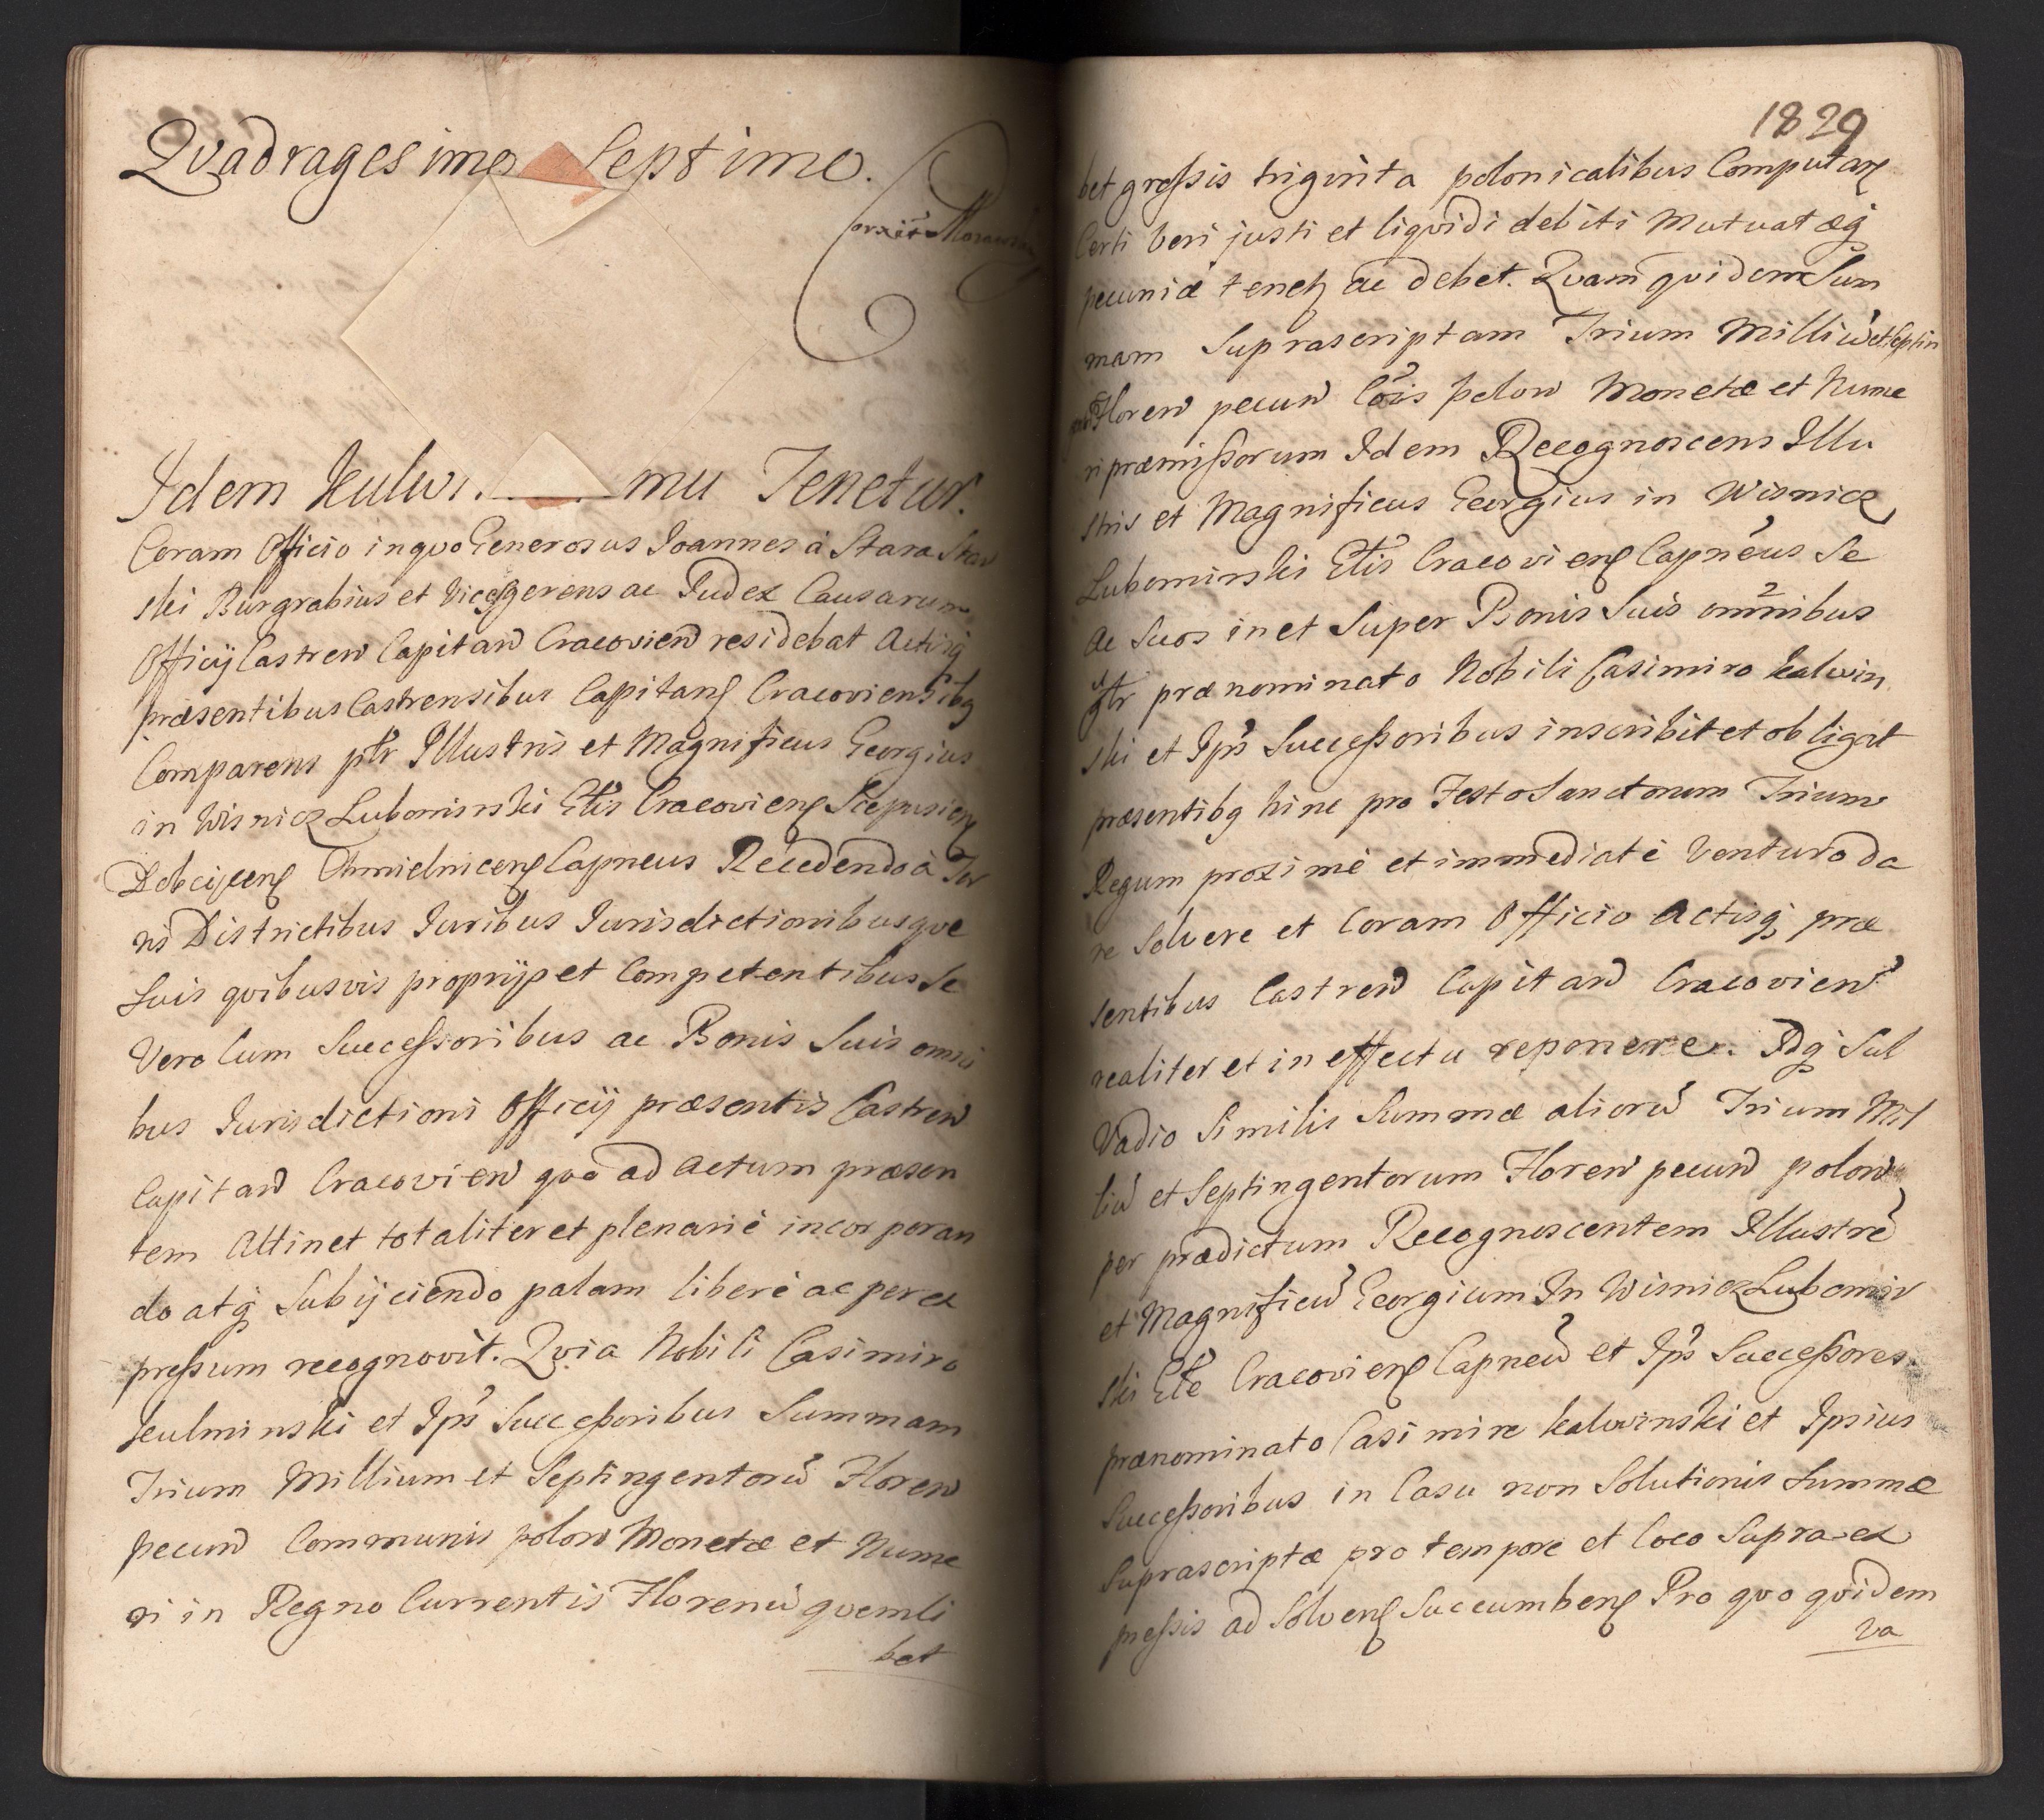 Qvadragesimo Septimo.
Corxit
Idem mu Tenetur.
Coram Officio in qvo Generosus Joannes à Stara Star
ski Burgrabius et Vicesgerens ac Judex Causarum
Officij Castren Capitan Cracovien residebat Actisq
præsentibus Castrensibus Capitan Cracoviensibq
Comparens ptr Illustris et Magnificus Georgius
in Wisnicz Lubomirski Etis Cracovien Scepusien
Chmielnicen Capneus Recedendo à Ter
ris Districtibus Juribus Jurisdictionibusqve
Suis qvibusvis proprijs et Competentibus Se
Vero Cum Successoribus ac Bonis Suis omni
bus Jurisdictioni Officij præsentis Castren
Capitan Cracovien qvo ad Actum præsen
tem Attinet totaliter et plenariè incorporan
do atq Subijciendo palam liberè ac per ex
pressum recognovit. Qvia Nobili Casimiro
Kulminski et Ips Successoribus Summam
Trium Millium et Septingentorū Floren
pecun Communis polon Monetæ et Nume
ri in Regno Currentis Florenū qvemli
bet
1829
bet grossis triginta polonicalibus Computan
Certi Veri justi et liqvidi debiti Mutuatæq
pecuniæ tenetz ac debet. Qvam qvidem Sum
mam Suprascriptam Trium Milliū et Septin
Floren pecun Cois polon Monetæ et Nume
ri præmissorum Idem Recognoscens Illu
stris et Magnificus Georgius in Wisnicz
Lubomirski Etis Cracovien Capneus Se
ac Suos in et Super Bonis Suis omnibus
gtr prænominato Nobili Casimiro Kalwin
ski et Ips Successoribus inscribit et obligat
præsentibq hinc pro Festo Sanctorum Trium
Regum proximè et immediatè Venturo da
re Solvere et Coram Officio Actisq præ
sentibus Castren Capitan Cracovien
realiter et in effectu reponere. Idq Sub
Vadio Similis Summæ aliorū Trium Mil
liū et Septingentorum Floren pecun polon
per prædictum Recognoscentem Illustrē
et Magnificū Georgium In Wisnicz Lubomir
ski Etē Cracovien Capneū et Ips Successores
prænominato Casimiro Kalwinski et Ipsius
Successoribus in Casu non Solutionis Summæ
Suprascriptæ pro tempore et loco Supra ex
pressis ad Solven Succumben Pro qvo qvidem
Va